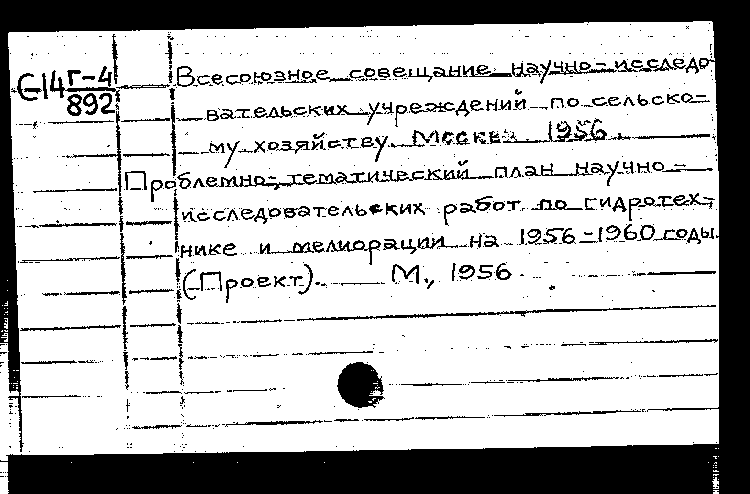 G-14 Г-4/892
Всесоюзное совещание научно-исследо-
вательских учреждений по сельско-
му хозяйству. Москва. 1956.
Проблемно-тематический план научно-
исследовательских работ по гидротех-
нике и мелиорации на 1956-1960 годы.
(Проект). М., 1956.